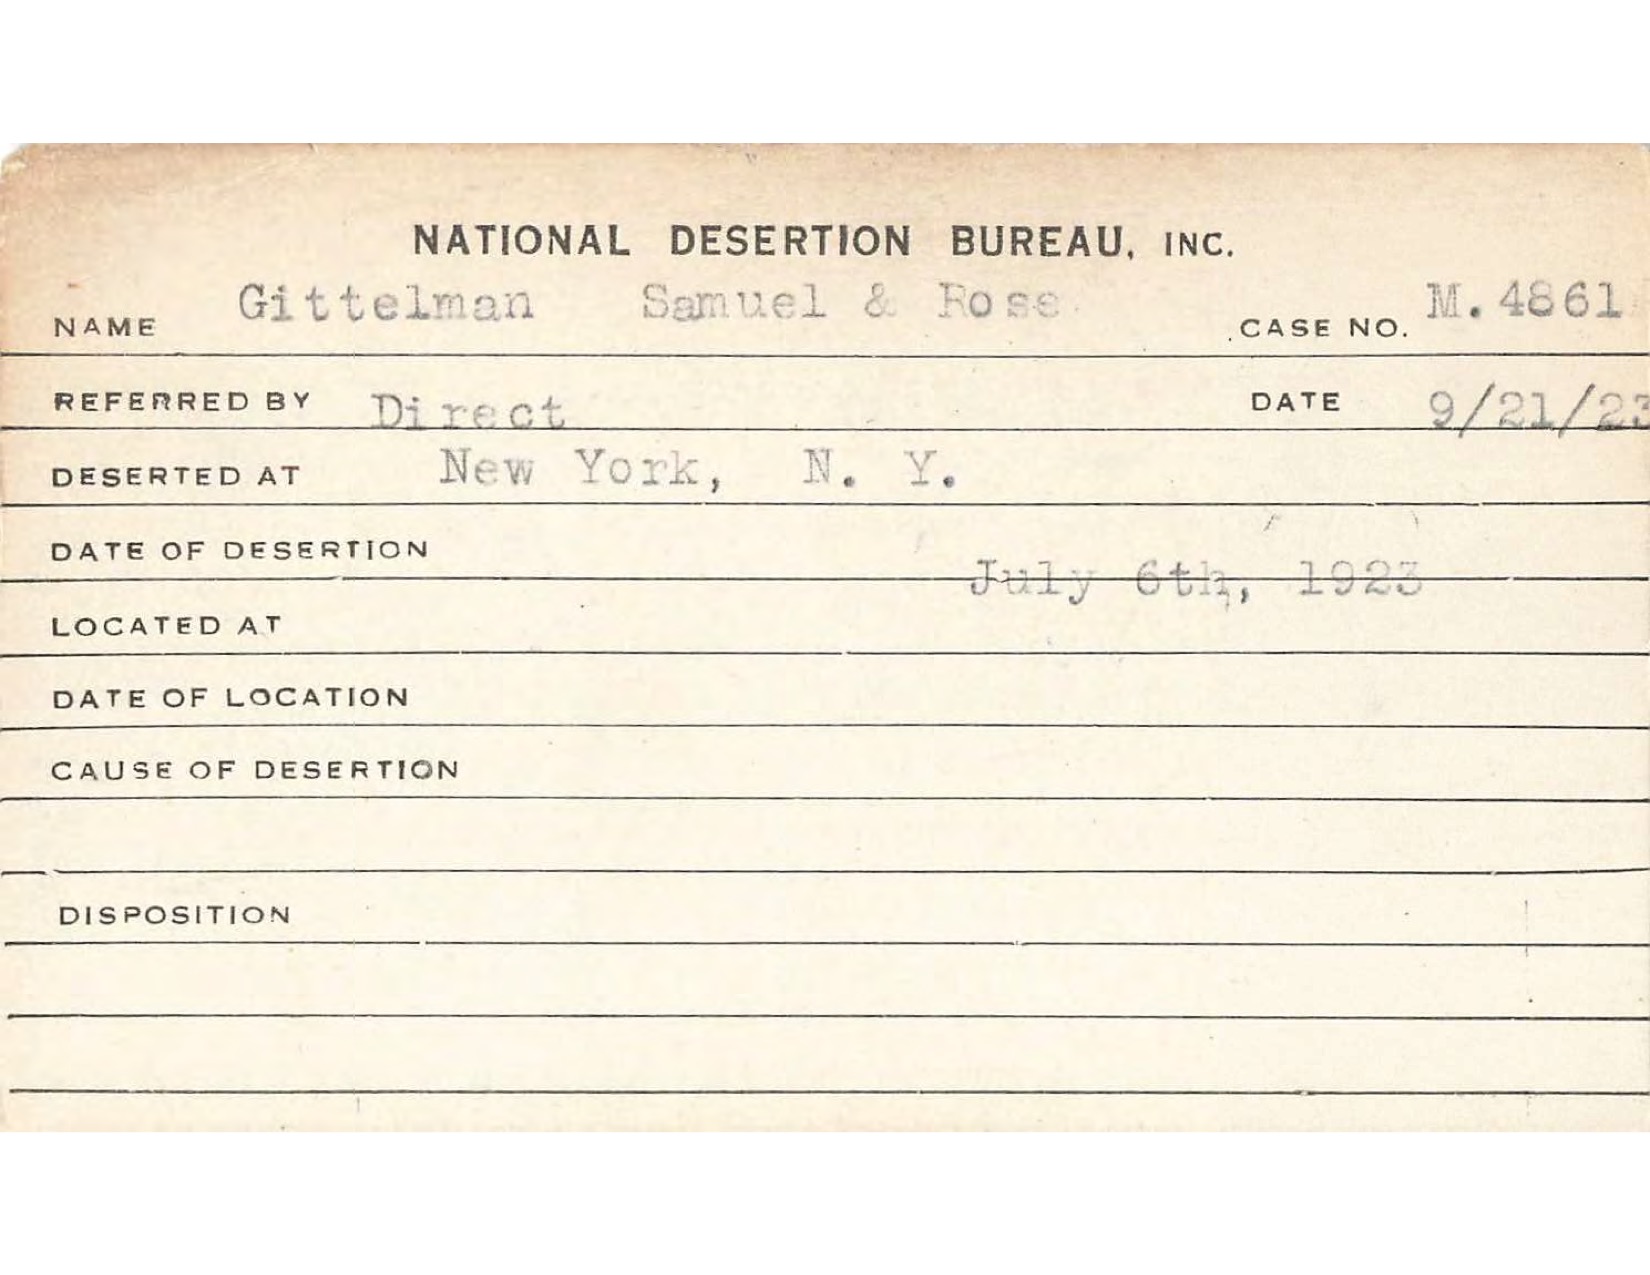 NATIONAL DESERTION BUREAU, INC.
NAME Gittelman Samuel & Rose CASE NO. M.4861
REFERRED BY Direct DATE 9/21/23
DESERTED AT New York, N. Y.
DATE OF DESERTION July 6th, 1923
LOCATED AT
DATE OF LOCATION
CAUSE OF DESERTION
DISPOSITION